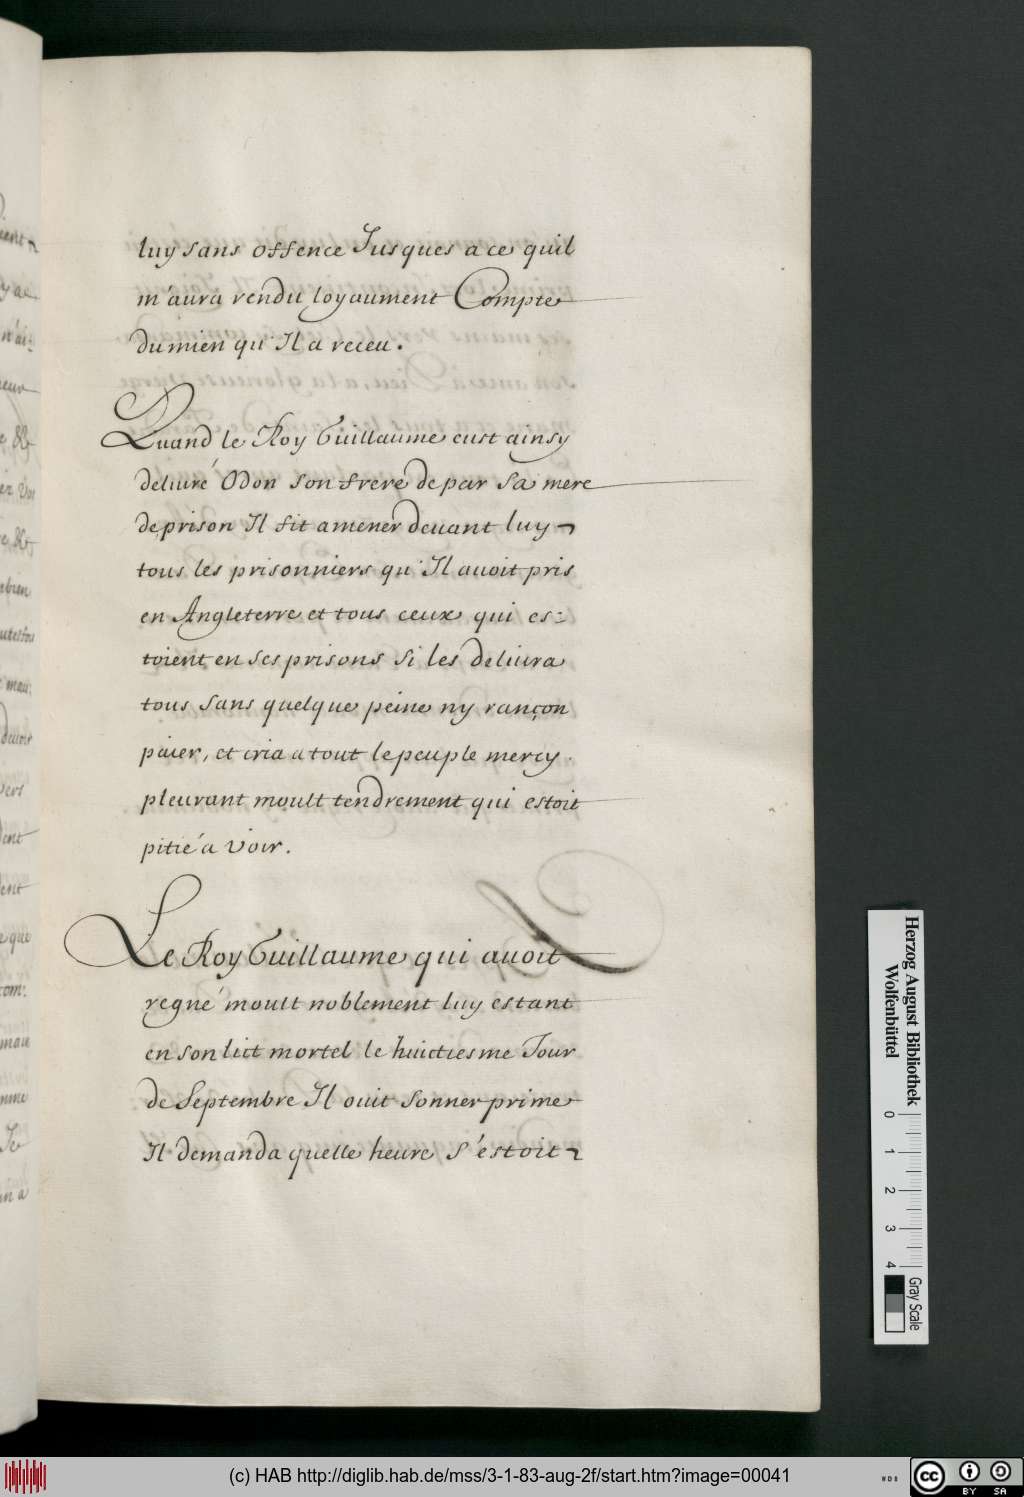 luy sans offence Jusques a ce quil
m'aura rendu loyaument Compte
du mien qu'Il a receu.
Quand le Roy Guillaume eust ainsy
deliuré Odon son frere de par sa mere
de prison Il fit amener deuant luy
tous les prisonniers qu'Il auoit pris
en Angleterre et tous ceux qui es=
toient en ses prisons si les deliura
tous sans quelque peine ny rançon
paier, et cria a tout le peuple mercy
pleurant moult tendrement qui estoit
pitié a voir.
Le Roy Guillaume qui auoit
regné moult noblement luy estant
en son lict mortel le huictiesme Jour
de Septembre Il ouit sonner prime
Il demanda quelle heure s'estoit
Herzog August Bibliothek
Wolfenbüttel
0 1 2 3 4
Gray Scale
(c) HAB http://diglib.hab.de/mss/3-1-83-aug-2f/start.htm?image=00041
cc BY SA